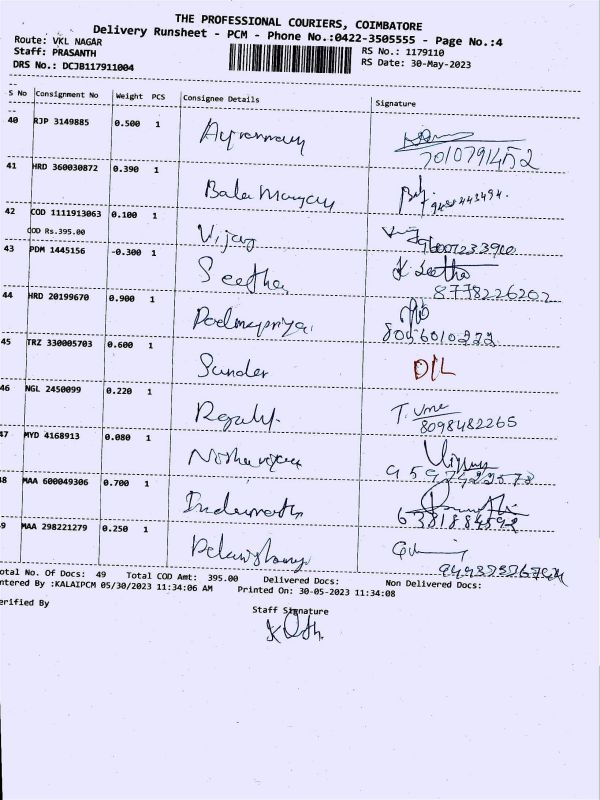 THE PROFESSIONAL COURIERS, COIMBATORE
Delivery Runsheet - PCM - Phone No.:0422-3505555 - Page No.:4
Route: VKL NAGAR
RS No.: 1179110
Staff: PRASANTH
RS Date: 30-May-2023
DRS No.: DCJB117911004
S No Consignment No Weight PCS Consignee Details Signature
40 RJP 3149885 0.500 1
7010791452
41 HRD 360030872 0.390 1
42 COD 1111913063 0.100 1 Vijay
COD Rs.395.00
43 PDM 1445156 -0.300 1 Seetha K. Seetha
8778226202
44 HRD 20199670 0.900 1
8056010222
45 TRZ 330005703 0.600 1 Sunder D/L
46 NGL 2450099 0.220 1
8098482265
47 MYD 4168913 0.080 1
48 MAA 600049306 0.700 1
6381884592
49 MAA 298221279 0.250 1
otal No. Of Docs: 49 Total COD Amt: 395.00 Delivered Docs: Non Delivered Docs:
ntered By :KALAIPCM 05/30/2023 11:34:06 AM Printed On: 30-05-2023 11:34:08
erified By
Staff Signature